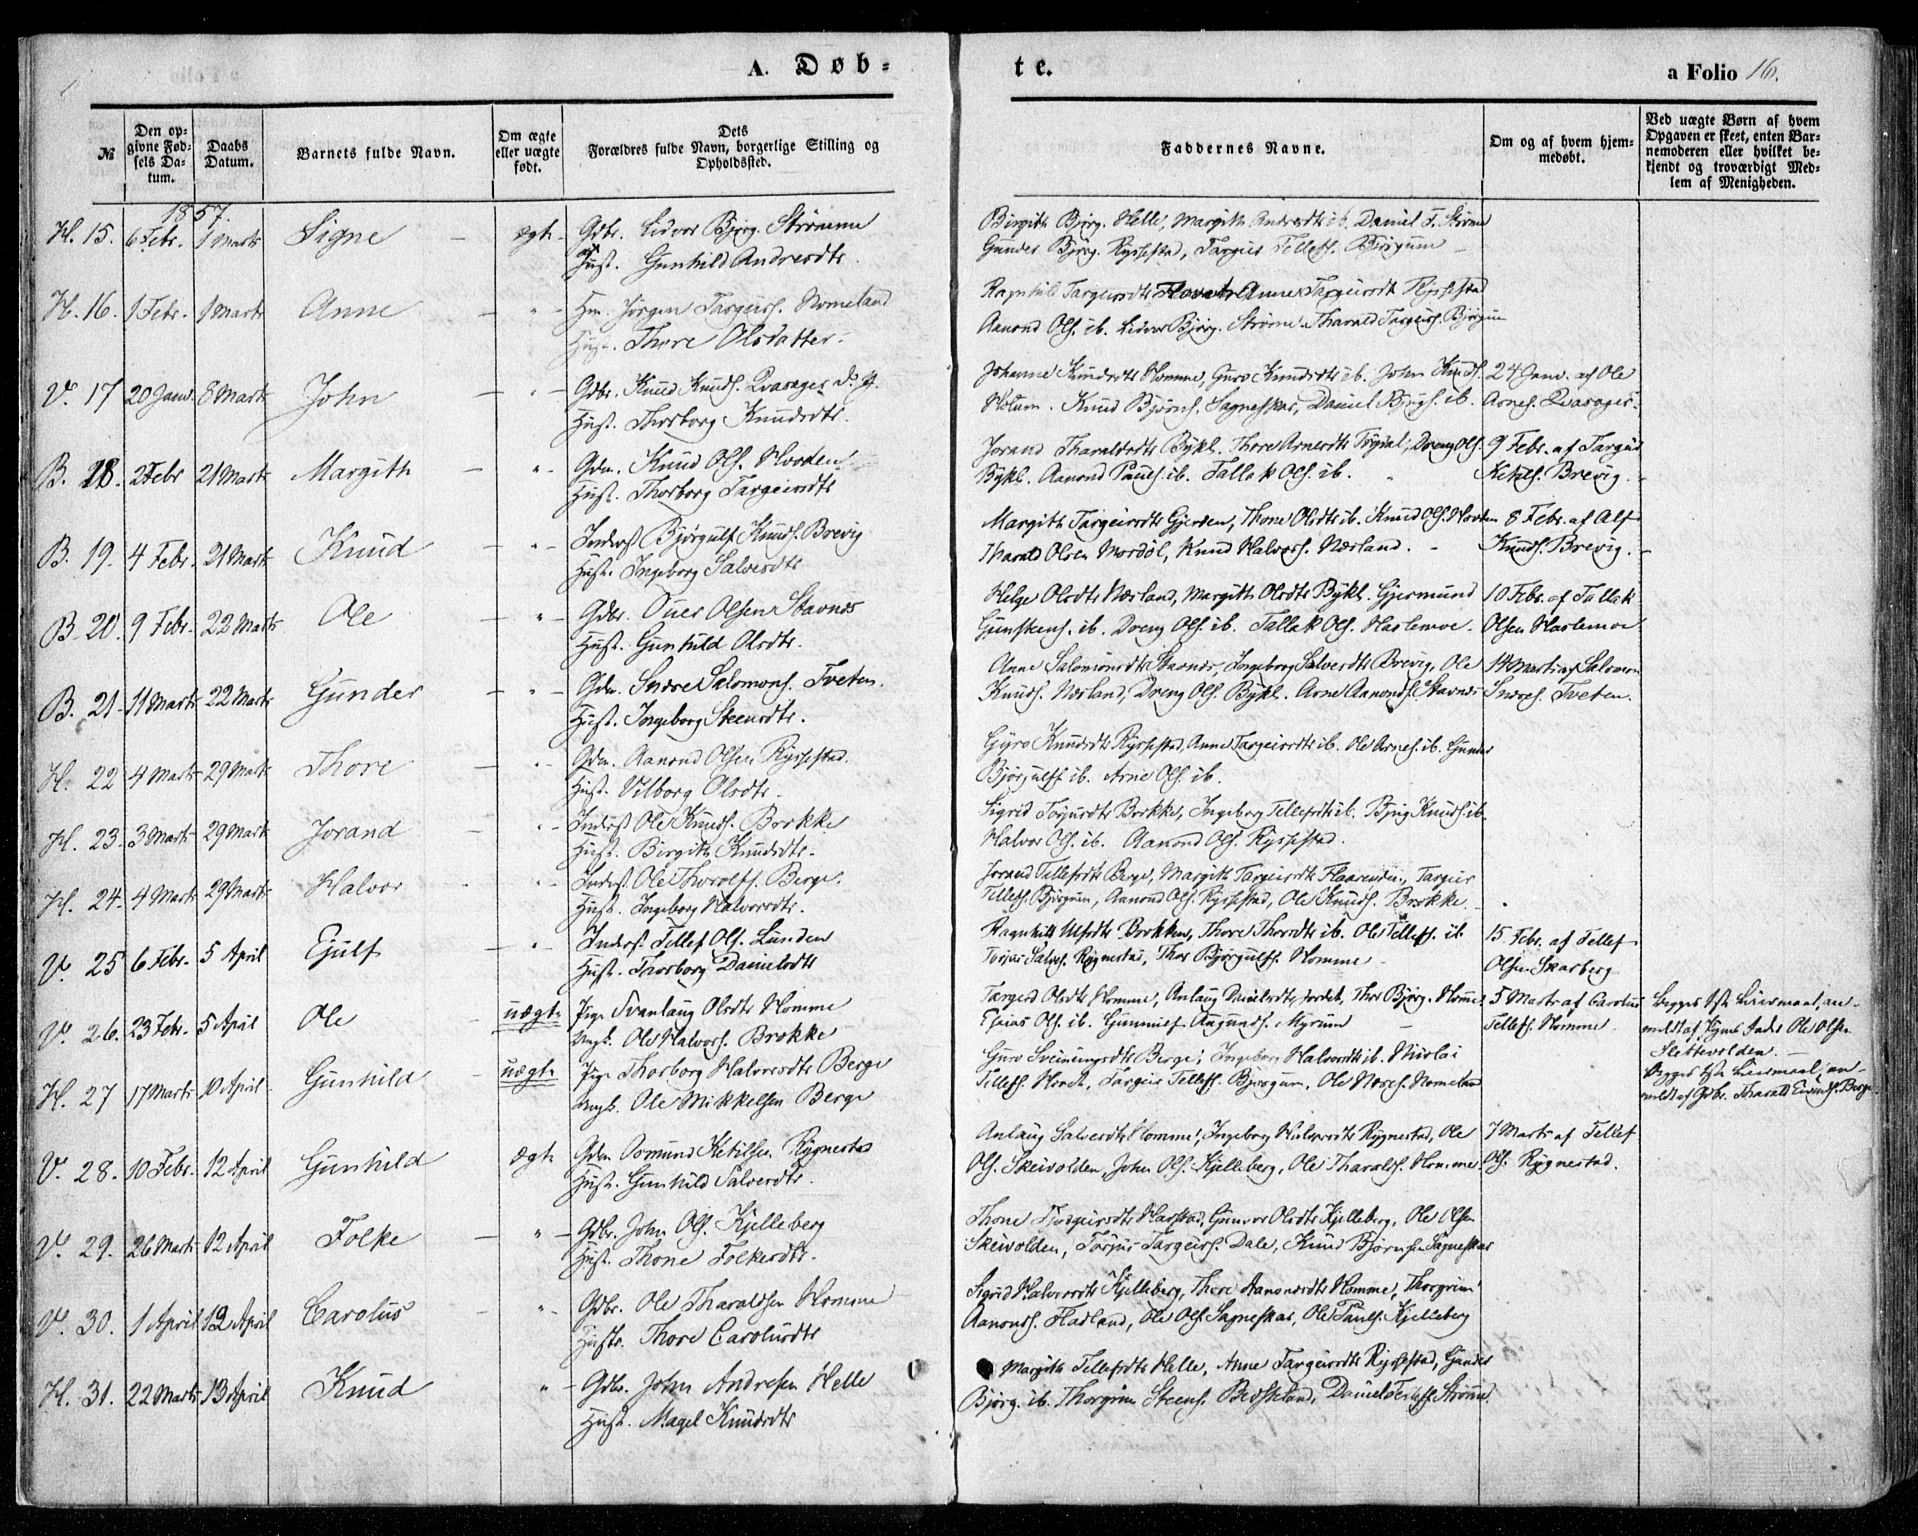 A. Døb-
te.
a Folio 16.
№
Den op-
givne Fød-
sels Da-
tum.
Daabs
Datum.
Barnets fulde Navn.
Om ægte
eller uægte
født.
Dets
Forældres fulde Navn, borgerlige Stilling og
Opholdssted.
Faddernes Navne.
Om og af hvem hjem-
medøbt.
Ved uægte Børn af hvem
Opgaven er skeet, enten Bar-
nemoderen eller hvilket be-
kjendt og troværdigt Med-
lem af Menigheden.
1857.
H. 15. 6 Febr. 1 Marts Signe ægte Gdbr. Lidvor Bjørg. Strømme
og Hust. Gunhild Andresdtr.
Birgith Bjørg. Helle, Margith Andresdtr ib. Daniel T. Strøme
Gunder Bjørg. Rysstad, Targeir Tellefs. Bjørgum
H. 16. 1 Febr. 1 Marts Anne " Hm. Jørgen Targeirs. Nomeland
Hust. Thore Olsdatter.
Ragnhild Targeirsdtr Anne Targeirsdtr Rysstad
Aanond Ols. ib. Lidvor Bjørg. Strøme. Tharald Targeirs. Bjørgum
V. 17 20 Janv. 8 Marts John " Gdbr. Knud Knuds. Qvasager
Hust. Thorborg Knudsdtr.
Johanne Knudsdtr Homme, Guro Knudsdtr ib. John Knuds.
Knud Bjørns. Sagneskar, Daniel Bjugs. ib.
24 Janv. af Ole
Arnes. Qvasager.
B. 18. 2 Febr 21 Marts Margith " Gdm. Knud Ols. Hovden
Hust. Thorborg Targeirsdtr
Jorand Tharaldsdtr Bykl. Thore Arnesdtr Dreng Ols.
Bykl. Aanond Pauls. ib. Tallak Ols. ib.
9 Febr. af Targeir
Ketils. Brevig.
B. 19. 4 Febr. 21 Marts Knud " Inderst Bjørgulf Knuds. Brevig
Hust. Ingeborg Salvesdtr
Margith Targeirsdtr Gjersden, Thone Olsdtr ib. Knud Ols. Hovden
Tharald Olsen Mosdøl, Knud Halvors. Næsland.
8 Febr. af Alf
Knuds. Brevig.
B. 20. 9 Febr. 22 Marts Ole " Gdbr. Ouver Olsen Stavnes
Hust. Gunhild Olsdtr.
Helge Olsdtr Næsland, Margith Olsdtr Bykl. Gjermund
Gunsteens. ib. Dreng Ols. ib. Tallak Ols. Harlemoe.
10 Febr. af Tallak
Olsen Harlemoe
B. 21. 11 Marts 22 Marts Gunder " Gdm. Snare Salomons. Tveten.
Hust. Ingeborg Steensdtr.
Anne Salomonsdtr Stavnes, Ingeborg Salvesdtr Brevig, Ole
Knuds. Næsland, Dreng Ols. Bykl. Arne Aanonds. Stavnes
14 Marts af Salomon
Snares. Tveten.
H. 22 4 Marts 29 Marts Thore " Gdm. Aanond Olsen Rysstad.
Hust. Vilborg Olsdtr.
Gyro Knudsdtr Rysstad, Anne Targeirsdtr ib. Ole Arnes. ib. Gunder
Bjørgulfs ib. Arne Ols. ib.
H. 23. 3 Marts 29 Marts Jorand " Inderst Ole Knuds. Brokke
Hust. Birgith Knudsdtr.
Sigrid Torjusdtr Brokke, Ingeborg Tellefsdtr ib. Bjug Knuds. ib.
Halvor Ols. ib. Aanond Ols. Rysstad.
H. 24. 4 Marts 29 Marts Halvor " Inderst Ole Thorolfs. Berge.
Hust. Ingeborg Halvorsdtr.
Jorand Tellefsdtr Berge, Margith Targeirsdtr Targeir
Tellefs. Bjørgum, Aanond Ols. Rysstad, Ole Knuds. Brokke.
V. 25 6 Febr. 5 April Ejulf " Inderst Tellef Ols. Lunden
Hust. Thorborg Danielsdtr
Ragnhild Ulfsdtr Brokken, Thore Thorsdtr ib. Ole Tellefs. ib
Torjus Salves. Rygnestad, Thor Bjørgulfs. Homme
15 Febr. af Tellef
Olsen Skarberg
V. 26. 23 Febr. 5 April Ole uægte Pige Svanlaug Olsdtr Homme
Ungk. Ole Halvors. Brokke
Targerd Olsdtr Homme, Anlaug Danielsdtr Jordet, Thor Bjørg. Homme
Esaias Ols. ib. Gunnulf Aagunds. Myrum
5 Marts af Carolus
Tellefs. Homme.
Begges 1ste Leiermaal, an-
meldt af Ole Olsen
H. 27 17 Marts 10 April Gunhild uægte Pige Thorborg Halvorsdtr Berge
Ungk. Ole Mikkelsen Berge
Guro Sveinungsdtr Berge, Ingeborg Halvorsdtr ib. Nicolai
Tellefs. Targeir Tellefs. Bjørgum, Ole Nomeland
Begges 1ste Leiermaal, an-
meldt af Gdbr. Tharald Eivinds. Berge.
V. 28. 10 Febr. 12 April Gunhild ægte Gdm Osmund Ketilsen Rygnestad
Hust. Gunhild Salvesdtr.
Anlaug Salvesdtr Homme, Ingeborg Halvorsdtr Rygnestad, Ole
Ols. Skeivolden, John Ols. Kjelleberg, Ole Tharalds. Homme
7 Marts af Tellef
Ols. Rygnestad.
V. 29. 26 Marts 12 April Folke " Gdbr. John Ols. Kjelleberg
Hust. Thone Folkesdtr.
Thone Harstad, Gunvor Olsdtr Kjelleberg, Ole Olsen
Skeivolden, Torjus Targeirs. Dale, Knud Bjørnsen Sagneskar
V. 30. 1 April 12 April Carolus " Gdbr. Ole Tharaldsen Homme
Hustr. Thore Carolusdtr
Sigrid Halvorsdtr Kjelleberg, Thore Aanondsdtr Homme, Thorgrim
Aanonds. Fladland, Ole Ols. Sagneskar, Ole Pauls. Kjelleberg
H. 31. 22 Marts 13 April Knud " Gdbr. John Andresen Helle
Hust. Magel Knudsdtr
Margith Tellefsdtr Helle, Anne Targeirsdtr Rysstad, Gunder
Bjørg. ib. Thorgrim Steens. Besteland, Daniel Tellefs. Strømme.